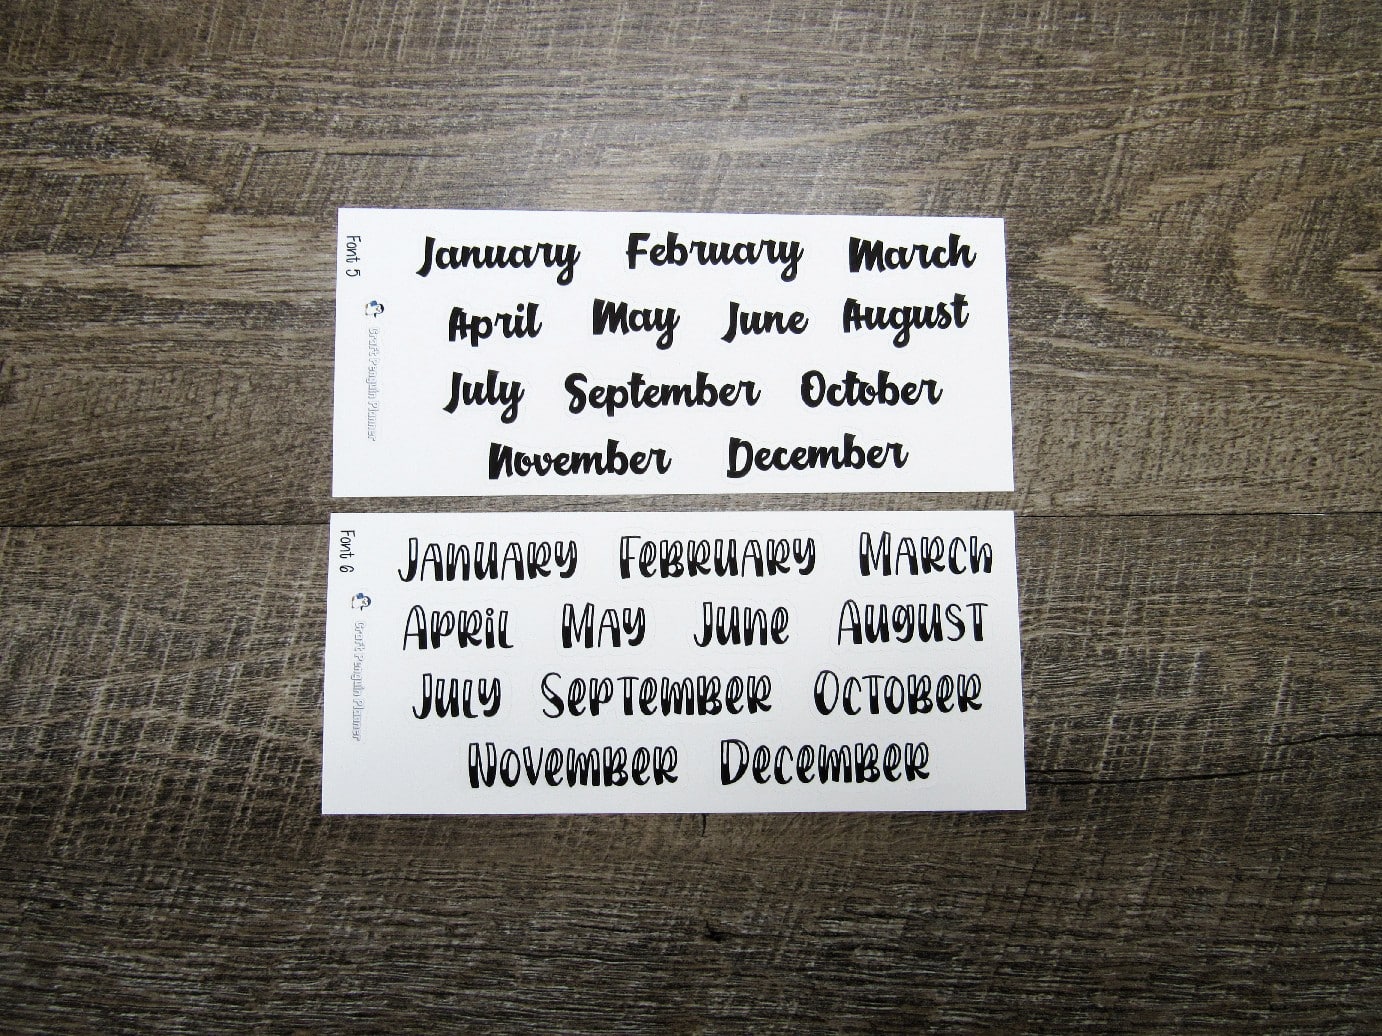 Font 5
Craft Penguin Planner
January February March
April May June August
July September October
November December
Font 6
Craft Penguin Planner
JANUARY FeBRUARY MARCh
APRil MAY June AuguST
July SepTemBeR OcToBeR
NovemBeR DecemBeR